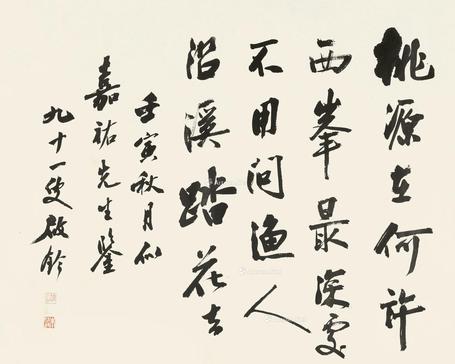 桃源在何許
西峯最深處
不用問漁人
沿溪踏花去
壬寅秋月似
嘉祐先生鑒
九十一叟啟鈐